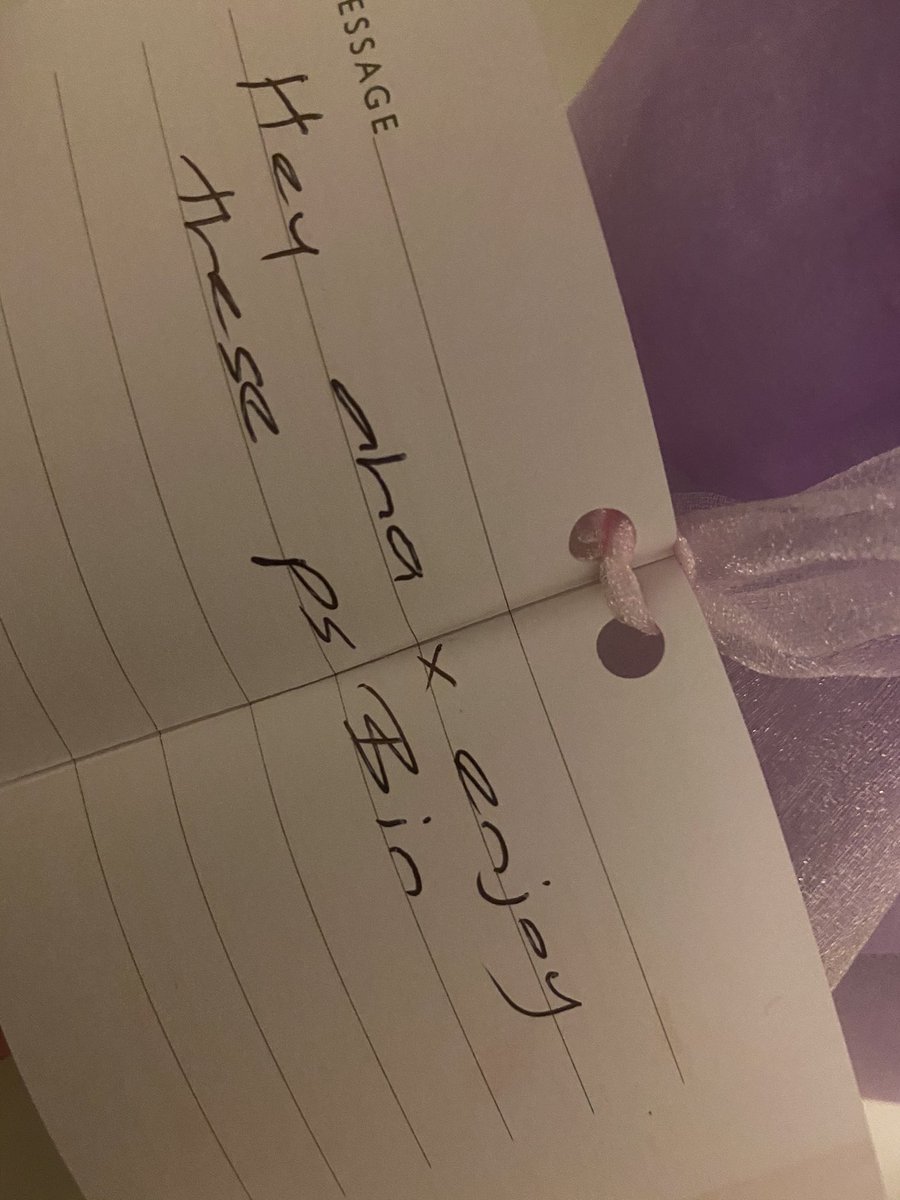 ESSAGE
Hey aha x enjoy
these ps Bin